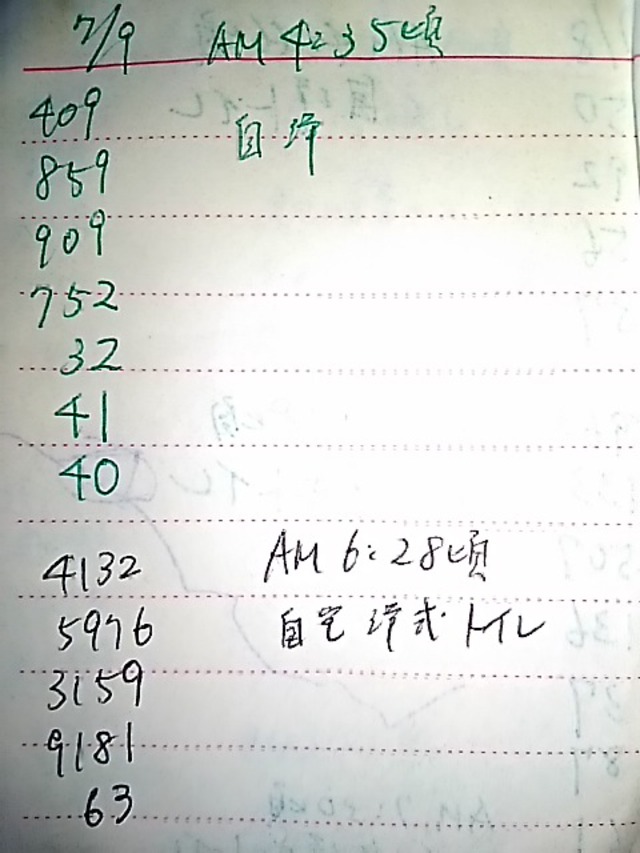 7/9 AM 4:35頃
409
自洋
859
909
752
32
41
40
4132 AM 6:28頃
5976 自宅洋式トイレ
3159
9181
63